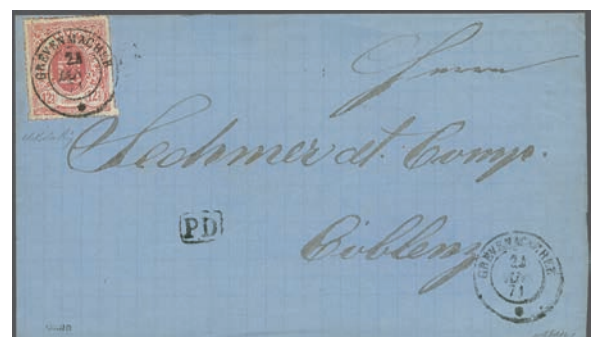 GREVENMACHER
24
12½
Herrn
Lechmer et Comp.
PD
Coblenz
GREVENMACHER
24
71